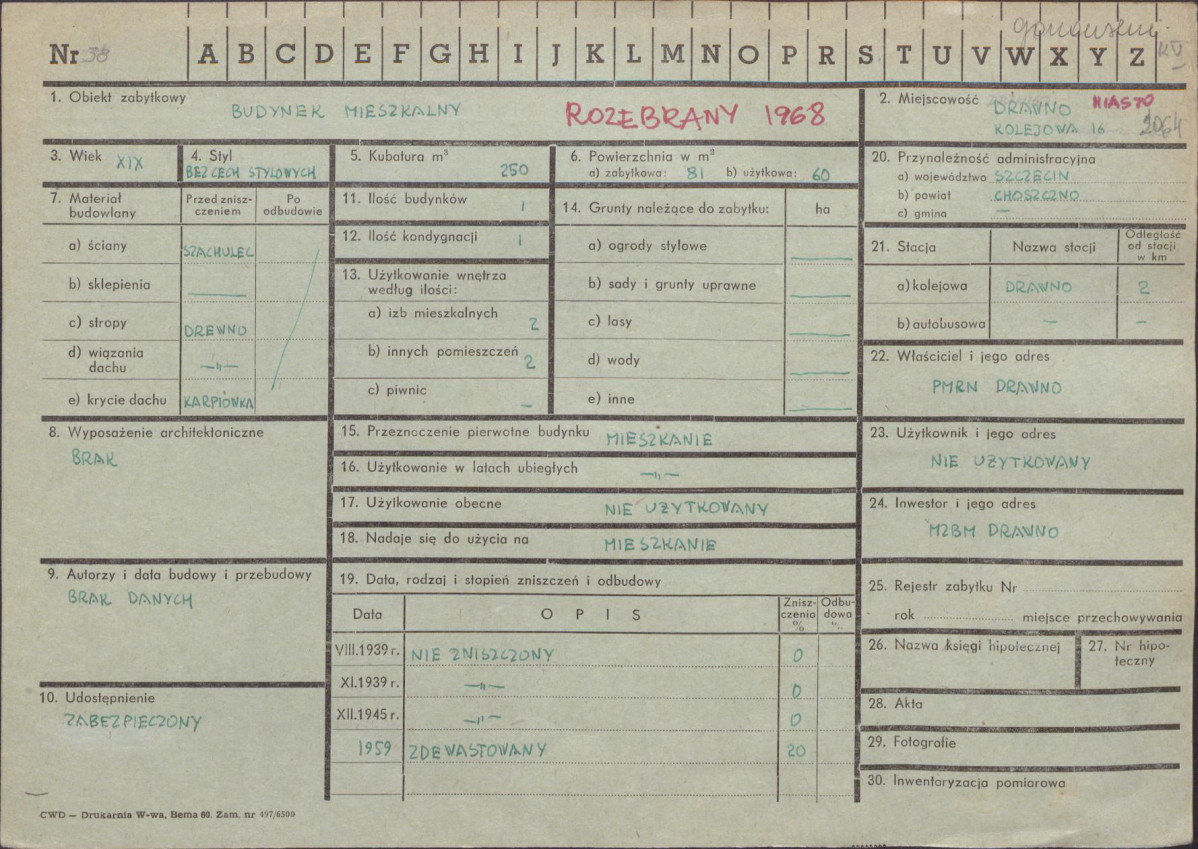 Nr 38 A B C D E F G H I J K L M N O P R S T U V W X Y Z
1. Obiekt zabytkowy
BUDYNEK MIESZKALNY
ROZEBRANY 1968
2. Miejscowość DRAWNO MIASTO
KOLEJOWA 16
2064
3. Wiek XIX
4. Styl
BEZ CECH STYLOWYCH
5. Kubatura m³
250
6. Powierzchnia w m²
a) zabytkowa: 81 b) użytkowa: 60
20. Przynależność administracyjna
a) województwo SZCZECIN
b) powiat CHOSZCZNO
c) gmina —
7. Materiał budowlany
Przed znisz-
czeniem
Po
odbudowie
a) ściany SZACHULEC
b) sklepienia —
c) stropy DREWNO
d) wiązania
dachu —„—
e) krycie dachu KARPIÓWKA
11. Ilość budynków 1
12. Ilość kondygnacji 1
13. Użytkowanie wnętrza
według ilości:
a) izb mieszkalnych 2
b) innych pomieszczeń 2
c) piwnic —
14. Grunty należące do zabytku: ha
a) ogrody stylowe —
b) sady i grunty uprawne —
c) lasy —
d) wody —
e) inne —
21. Stacja
Nazwa stacji
Odległość
od stacji
w km
a) kolejowa DRAWNO 2
b) autobusowa — —
22. Właściciel i jego adres
PMRN DRAWNO
8. Wyposażenie architektoniczne
BRAK
15. Przeznaczenie pierwotne budynku MIESZKANIE
16. Użytkowanie w latach ubiegłych —„—
17. Użytkowanie obecne NIE UŻYTKOWANY
18. Nadaje się do użycia na MIESZKANIE
23. Użytkownik i jego adres
NIE UŻYTKOWANY
24. Inwestor i jego adres
MZBM DRAWNO
9. Autorzy i data budowy i przebudowy
BRAK DANYCH
19. Data, rodzaj i stopień zniszczeń i odbudowy
Data
O P I S
Znisz-
czenia
%
Odbu-
dowa
%
VIII.1939 r. NIE ZNISZCZONY 0
XI.1939 r. —„— 0
XII.1945 r. —„— 0
1959 ZDEWASTOWANY 20
25. Rejestr zabytku Nr
rok miejsce przechowywania
26. Nazwa księgi hipotecznej
27. Nr hipo-
teczny
10. Udostępnienie
ZABEZPIECZONY
28. Akta
29. Fotografie
30. Inwentaryzacja pomiarowa
CWD — Drukarnia W-wa, Bema 60. Zam. nr 497/6500